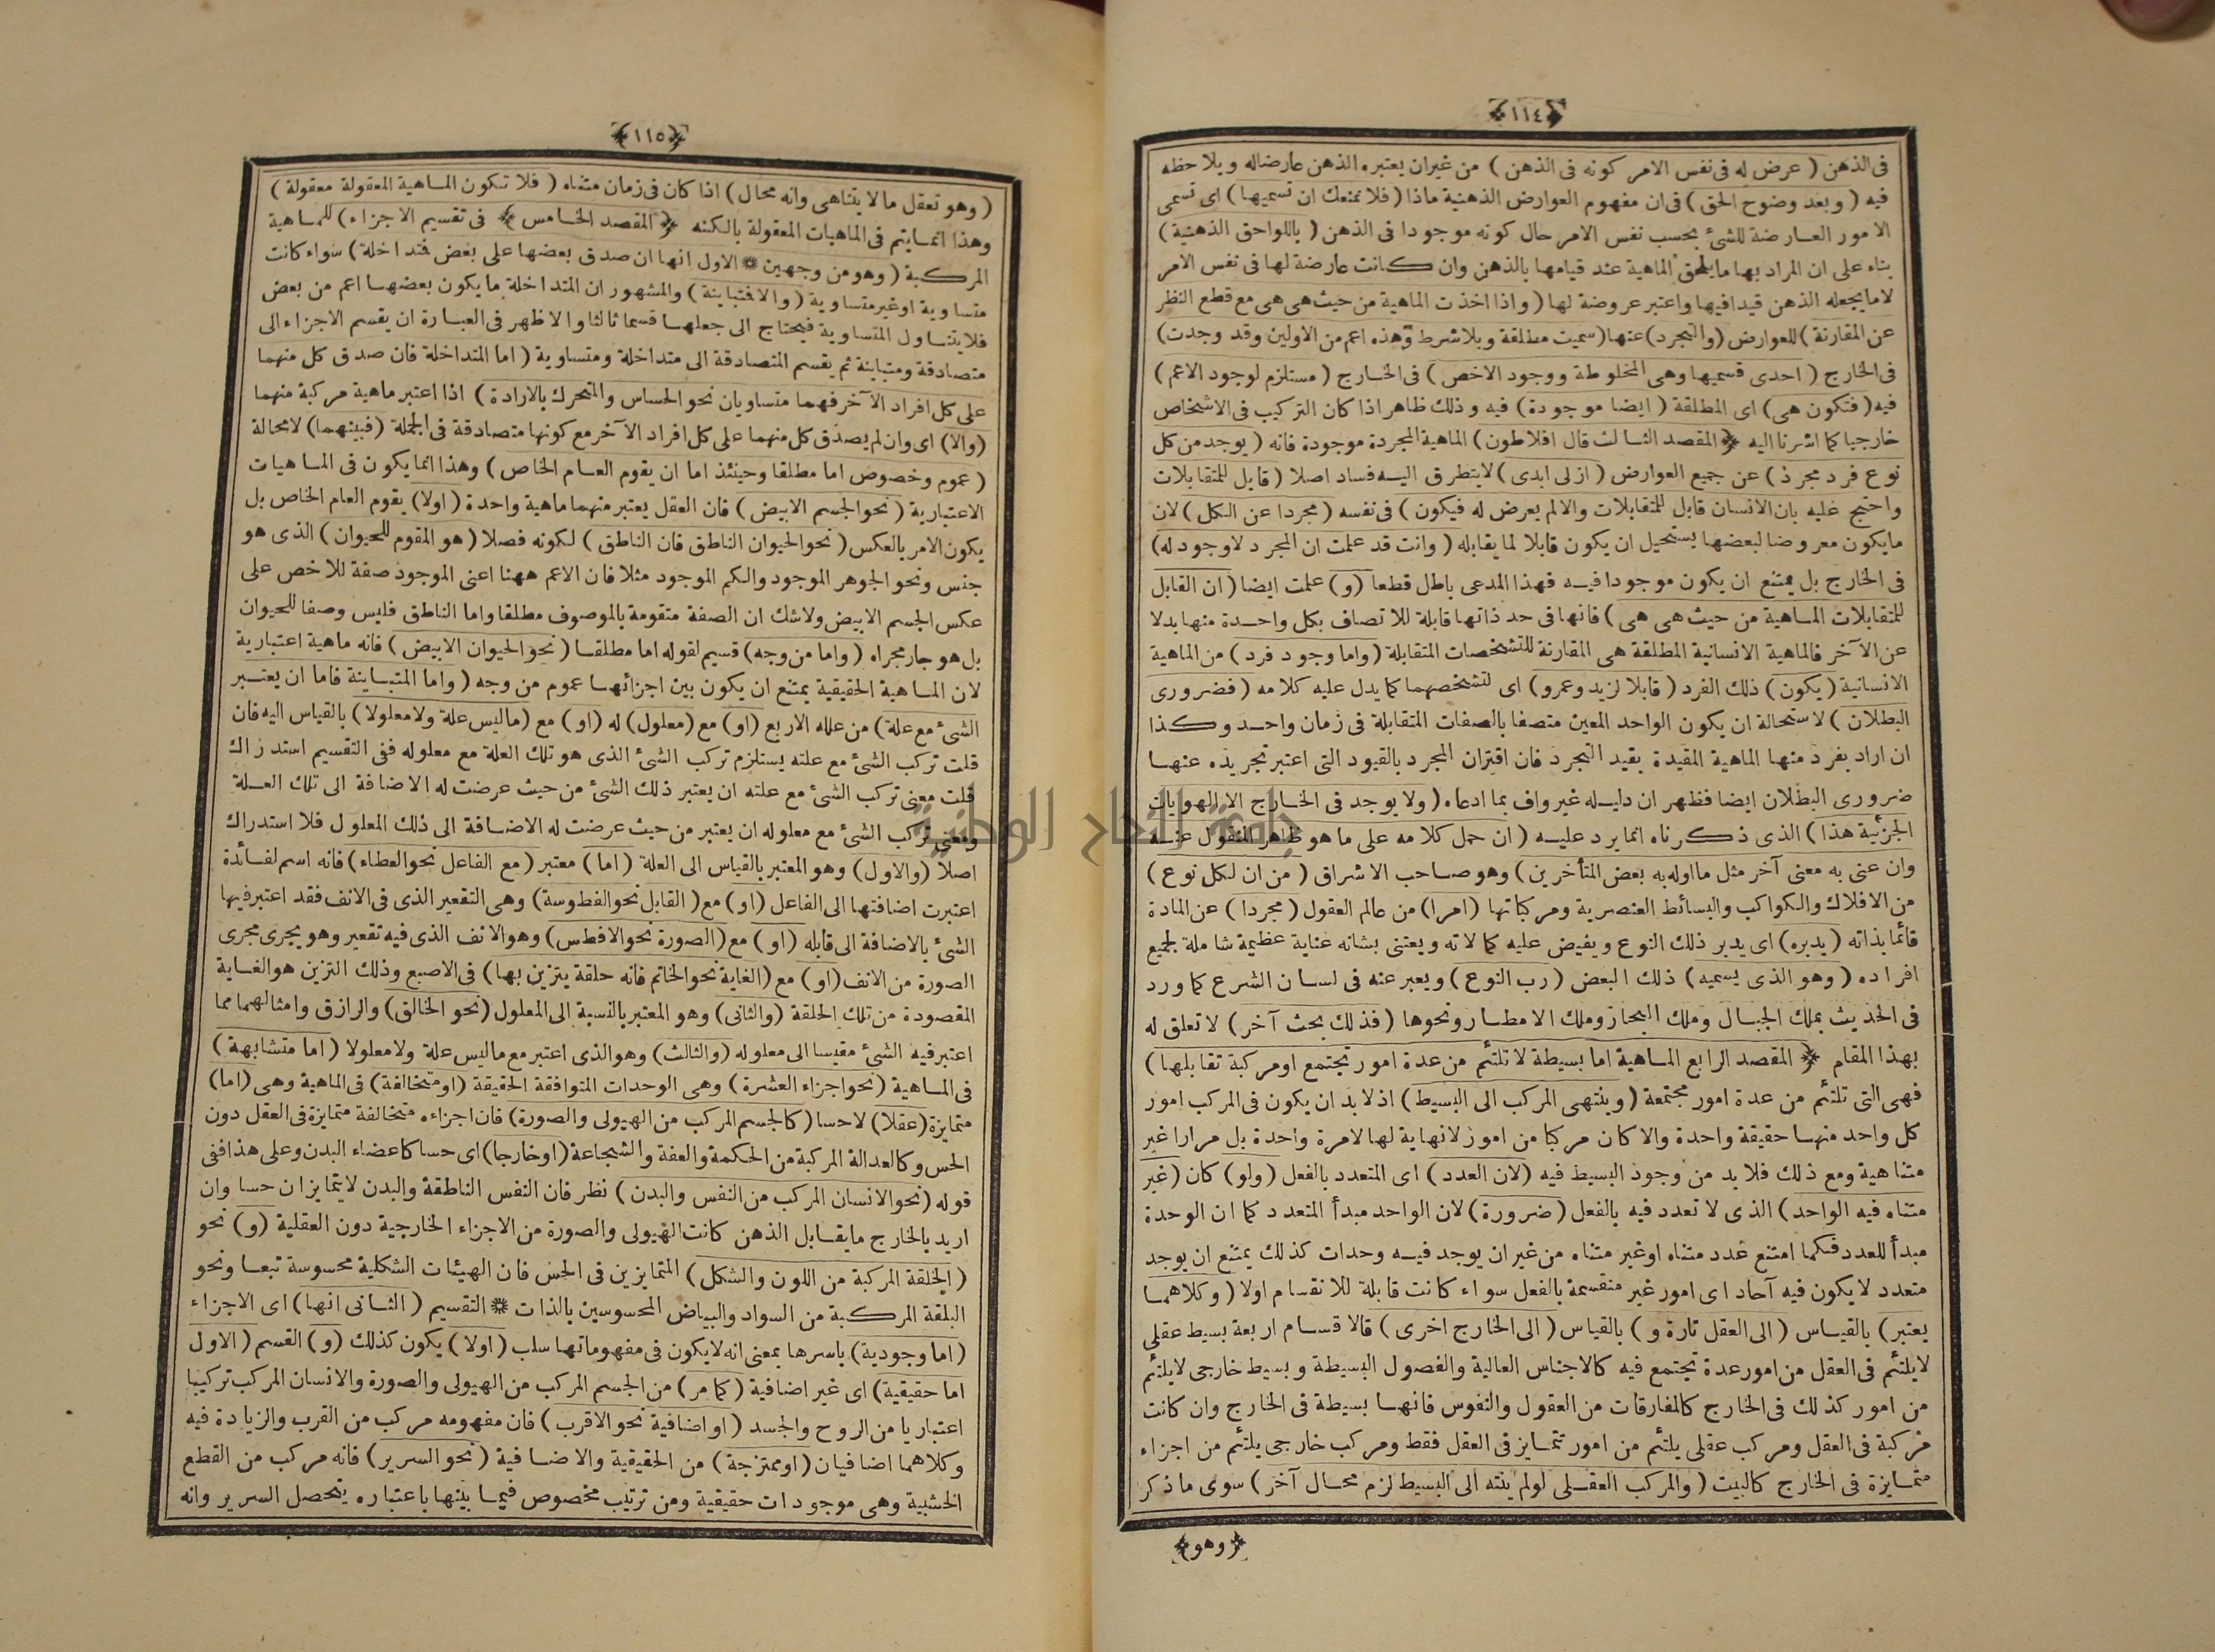 ﴿١١٤﴾
فى الذهن ( عرض له فى نفس الامر كونه فى الذهن ) من غيران يعتبره الذهن عارضاله ويلاحظه
فيه ( وبعد وضوح الحق ) فى ان مفهوم العوارض الذهنية ماذا ( فلا نمنعك ان تسميها ) اى تسمى
الامور العارضة للشئ بحسب نفس الامر حال كونه موجودا فى الذهن ( باللواحق الذهنية )
بناء على ان المراد بها ما يلحق الماهية عند قيامها بالذهن وان كانت عارضة لها فى نفس الامر
لا ما يجعله الذهن قيدا فيها واعتبر عروضة لها ( واذا اخذت الماهية من حيث هى هى مع قطع النظر
عن المقارنة ) للعوارض ( والتجرد ) عنها ( سميت مطلقة وبلا شرط وهذه اعم من الاولين وقد وجدت )
فى الخارج ( احدى قسميها وهى المخلوطة ووجود الاخص ) فى الخارج ( مستلزم لوجود الاعم )
فيه ( فتكون هى ) اى المطلقة ( ايضا موجودة ) فيه وذلك ظاهر اذا كان التركيب فى الاشخاص
خارجيا كما اشرنا اليه ﴿ المقصد الثالث قال افلاطون ) الماهية المجردة موجودة فانه ( يوجد من كل
نوع فرد مجرد ) عن جميع العوارض ( ازلى ابدى ) لا يتطرق اليه فساد اصلا ( قابل للمتقابلات
واحتج عليه بان الانسان قابل للمتقابلات والا لم يعرض له فيكون ) فى نفسه ( مجردا عن الكل ) لان
ما يكون معروضا لبعضها يستحيل ان يكون قابلا لما يقابله ( وانت قد علمت ان المجرد لا وجود له )
فى الخارج بل يمتنع ان يكون موجودا فيه فهذا المدعى باطل قطعا ( و ) علمت ايضا ( ان القابل
للمتقابلات الماهية من حيث هى هى ) فانها فى حد ذاتها قابلة للاتصاف بكل واحدة منها بدلا
عن الآخر فالماهية الانسانية المطلقة هى المقارنة للتشخصات المتقابلة ( واما وجود فرد ) من الماهية
الانسانية ( يكون ) ذلك الفرد ( قابلا لزيد وعمرو ) اى لتشخصهما كما يدل عليه كلامه ( فضرورى
البطلان ) لاستحالة ان يكون الواحد المعين متصفا بالصفات المتقابلة فى زمان واحد وكذا
ان اراد بفرد منها الماهية المقيدة بقيد التجرد فان اقتران المجرد بالقيود التى اعتبر تجريده عنها
ضرورى البطلان ايضا فظهر ان دليله غير واف بما ادعاه ( ولا يوجد فى الخارج الا الهويات
الجزئية هذا ) الذى ذكرناه انما يرد عليه ( ان حمل كلامه على ما هو ظاهر المنقول عنه
وان عنى به معنى آخر مثل ما اوله به بعض المتأخرين ) وهو صاحب الاشراق ( من ان لكل نوع )
من الافلاك والكواكب والبسائط العنصرية ومركباتها ( امرا ) من عالم العقول ( مجردا ) عن المادة
قائما بذاته ( يدبره ) اى يدبر ذلك النوع ويفيض عليه كمالاته ويعتنى بشانه عناية عظيمة شاملة لجميع
افراده ( وهو الذى يسميه ) ذلك البعض ( رب النوع ) ويعبر عنه فى لسان الشرع كما ورد
فى الحديث بملك الجبال وملك البحار وملك الامطار ونحوها ( فذلك بحث آخر ) لا تعلق له
بهذا المقام ﴿ المقصد الرابع الماهية اما بسيطة لا تلتئم من عدة امور تجتمع او مركبة تقابلها )
فهى التى تلتئم من عدة امور مجتمعة ( وينتهى المركب الى البسيط ) اذ لا بد ان يكون فى المركب امور
كل واحد منها حقيقة واحدة والا كان مركبا من امور لا نهاية لها لا مرة واحدة بل مرارا غير
متناهية ومع ذلك فلا بد من وجود البسيط فيه ( لان العدد ) اى المتعدد بالفعل ( ولو ) كان ( غير
متناه فيه الواحد ) الذى لا تعدد فيه بالفعل ( ضرورة ) لان الواحد مبدأ المتعدد كما ان الوحدة
مبدأ للعدد فكما امتنع عدد متناه او غير متناه من غير ان يوجد فيه وحدات كذلك يمتنع ان يوجد
متعدد لا يكون فيه آحاد اى امور غير منقسمة بالفعل سواء كانت قابلة للانقسام اولا ( وكلاهما
يعتبر ) بالقياس ( الى العقل تارة و ) بالقياس ( الى الخارج اخرى ) فالاقسام اربعة بسيط عقلى
لا يلتئم فى العقل من امور عدة تجتمع فيه كالاجناس العالية والفصول البسيطة وبسيط خارجى لا يلتئم
من امور كذلك فى الخارج كالمفارقات من العقول والنفوس فانها بسيطة فى الخارج وان كانت
مركبة فى العقل ومركب عقلى يلتئم من امور تتمايز فى العقل فقط ومركب خارجى يلتئم من اجزاء
متمايزة فى الخارج كالبيت ( والمركب العقلى لو لم ينته الى البسيط لزم محال آخر ) سوى ما ذكر
﴿وهو﴾
﴿١١٥﴾
( وهو تعقل ما لا يتناهى وانه محال ) اذا كان فى زمان متناه ( فلا تكون الماهية المعقولة معقولة )
وهذا انما يتم فى الماهيات المعقولة بالكنه ﴿ المقصد الخامس ﴾ فى تقسيم الاجزاء ) للماهية
المركبة ( وهو من وجهين * الاول انها ان صدق بعضها على بعض فتداخلة ) سواء كانت
متساوية او غير متساوية ( والا فتباينة ) والمشهور ان المتداخلة ما يكون بعضها اعم من بعض
فلا يتناول المتساوية فيحتاج الى جعلها قسما ثالثا والاظهر فى العبارة ان يقسم الاجزاء الى
متصادقة ومتباينة ثم يقسم المتصادقة الى متداخلة ومتساوية ( اما المتداخلة فان صدق كل منهما
على كل افراد الآخر فهما متساويان نحو الحساس والمتحرك بالارادة ) اذا اعتبر ماهية مركبة منهما
( والا ) اى وان لم يصدق كل منهما على كل افراد الآخر مع كونها متصادقة فى الجملة ( فبينهما ) لا محالة
( عموم وخصوص اما مطلقا وحينئذ اما ان يقوم العام الخاص ) وهذا انما يكون فى الماهيات
الاعتبارية ( نحو الجسم الابيض ) فان العقل يعتبر منهما ماهية واحدة ( اولا ) يقوم العام الخاص بل
يكون الامر بالعكس ( نحو الحيوان الناطق فان الناطق ) لكونه فصلا ( هو المقوم للحيوان ) الذى هو
جنس ونحو الجوهر الموجود والكم الموجود مثلا فان الاعم ههنا اعنى الموجود صفة للاخص على
عكس الجسم الابيض ولا شك ان الصفة متقومة بالموصوف مطلقا واما الناطق فليس وصفا للحيوان
بل هو جار مجراه ( واما من وجه ) قسيم لقوله اما مطلقا ( نحو الحيوان الابيض ) فانه ماهية اعتبارية
لان الماهية الحقيقية يمتنع ان يكون بين اجزائها عموم من وجه ( واما المتباينة فاما ان يعتبر
الشئ مع علة ) من علله الاربع ( او ) مع ( معلول ) له ( او ) مع ( ما ليس علة ولا معلولا ) بالقياس اليه فان
قلت تركب الشئ مع علته يستلزم تركب الشئ الذى هو تلك العلة مع معلوله ففى التقسيم استدراك
قلت معنى تركب الشئ مع علته ان يعتبر ذلك الشئ من حيث عرضت له الاضافة الى تلك العلة
ومعنى تركب الشئ مع معلوله ان يعتبر من حيث عرضت له الاضافة الى ذلك المعلول فلا استدراك
اصلا ( والاول ) وهو المعتبر بالقياس الى العلة ( اما ) معتبر ( مع الفاعل نحو العطاء ) فانه اسم لفائدة
اعتبرت اضافتها الى الفاعل ( او ) مع ( القابل نحو الفطوسة ) وهى التقعير الذى فى الانف فقد اعتبر فيها
الشئ بالاضافة الى قابله ( او ) مع ( الصورة نحو الافطس ) وهو الانف الذى فيه تقعير وهو يجرى مجرى
الصورة من الانف ( او ) مع ( الغاية نحو الخاتم فانه حلقة يتزين بها ) فى الاصبع وذلك التزين هو الغاية
المقصودة من تلك الحلقة ( والثانى ) وهو المعتبر بالنسبة الى المعلول ( نحو الخالق ) والرازق وامثالهما مما
اعتبر فيه الشئ مقيسا الى معلوله ( والثالث ) وهو الذى اعتبر مع ما ليس علة ولا معلولا ( اما متشابهة )
فى الماهية ( نحو اجزاء العشرة ) وهى الوحدات المتوافقة الحقيقة ( او متخالفة ) فى الماهية وهى ( اما )
متمايزة ( عقلا ) لا حسا ( كالجسم المركب من الهيولى والصورة ) فان اجزاءه متخالفة متمايزة فى العقل دون
الحس وكالعدالة المركبة من الحكمة والعفة والشجاعة ( او خارجا ) اى حسا كاعضاء البدن وعلى هذا ففى
قوله ( نحو الانسان المركب من النفس والبدن ) نظر فان النفس الناطقة والبدن لا يتمايزان حسا وان
اريد بالخارج ما يقابل الذهن كانت الهيولى والصورة من الاجزاء الخارجية دون العقلية ( و ) نحو
( الخلقة المركبة من اللون والشكل ) المتمايزين فى الحس فان الهيئات الشكلية محسوسة تبعا ونحو
البلقة المركبة من السواد والبياض المحسوسين بالذات * التقسيم ( الثانى انها ) اى الاجزاء
( اما وجودية ) باسرها بمعنى انه لا يكون فى مفهوماتها سلب ( اولا ) يكون كذلك ( و ) القسم ( الاول
اما حقيقية ) اى غير اضافية ( كما مر ) من الجسم المركب من الهيولى والصورة والانسان المركب تركيبا
اعتباريا من الروح والجسد ( او اضافية نحو الاقرب ) فان مفهومه مركب من القرب والزيادة فيه
وكلاهما اضافيان ( او ممتزجة ) من الحقيقية والاضافية ( نحو السرير ) فانه مركب من القطع
الخشبية وهى موجودات حقيقية ومن ترتيب مخصوص فيما بينها باعتباره يتحصل السرير وانه
جامعة النجاح الوطنية